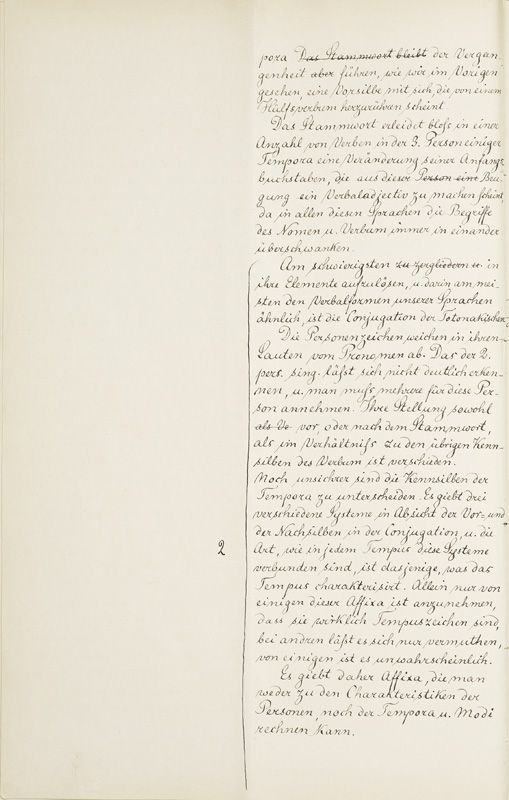 pora Das Stammwort bleibt der Vergan-
genheit aber führen, wie wir im Vorigen
gesehen, eine Vorsilbe mit sich, die von einem
Hülfsverbum herzurühren scheint
Das Stammwort erleidet bloſs in einer
Anzahl von Verben in der 3. Person einiger
Tempora eine Veränderung seiner Anfangs
buchstaben, die aus dieser Person eine Beu-
gung ein Verbaladjectiv zu machen scheint,
da in allen diesen Sprachen die Begriffe
des Nomen u. Verbum immer in einander
überschwanken.
Am schwierigsten zu zergliedern u. in
ihre Elemente aufzulösen, u. darin am mei-
sten den Verbalformen unserer Sprachen
ähnlich, ist die Conjugation der Totonakischen
Die Personenzeichen weichen in ihren
Lauten vom Pronomen ab. Das der 2.
pers. sing. läſst sich nicht deutlich erken-
nen, u. man muſs mehrere für diese Per-
son annehmen. Ihre Stellung sowohl
als Ve vor, oder nach dem Stammwort,
als im Verhältniſs zu den übrigen Kenn-
silben des Verbum ist verschieden.
Noch unsichrer sind die Kennsilben der
Tempora zu unterscheiden. Es giebt drei
verschiedene Systeme in Absicht der Vor- und
der Nachsilben in der Conjugation, u. die
2 Art, wie in jedem Tempus diese Systeme
verbunden sind, ist dasjenige, was das
Tempus charakterisirt. Allein nur von
einigen dieser Affixa ist anzunehmen,
dass sie wirklich Tempuszeichen sind,
bei andren läſst es sich nur vermuthen,
von einigen ist es unwahrscheinlich.
Es giebt daher Affixa, die man
weder zu den Charakteristiken der
Personen, noch der Tempora u. Modi
rechnen kann.